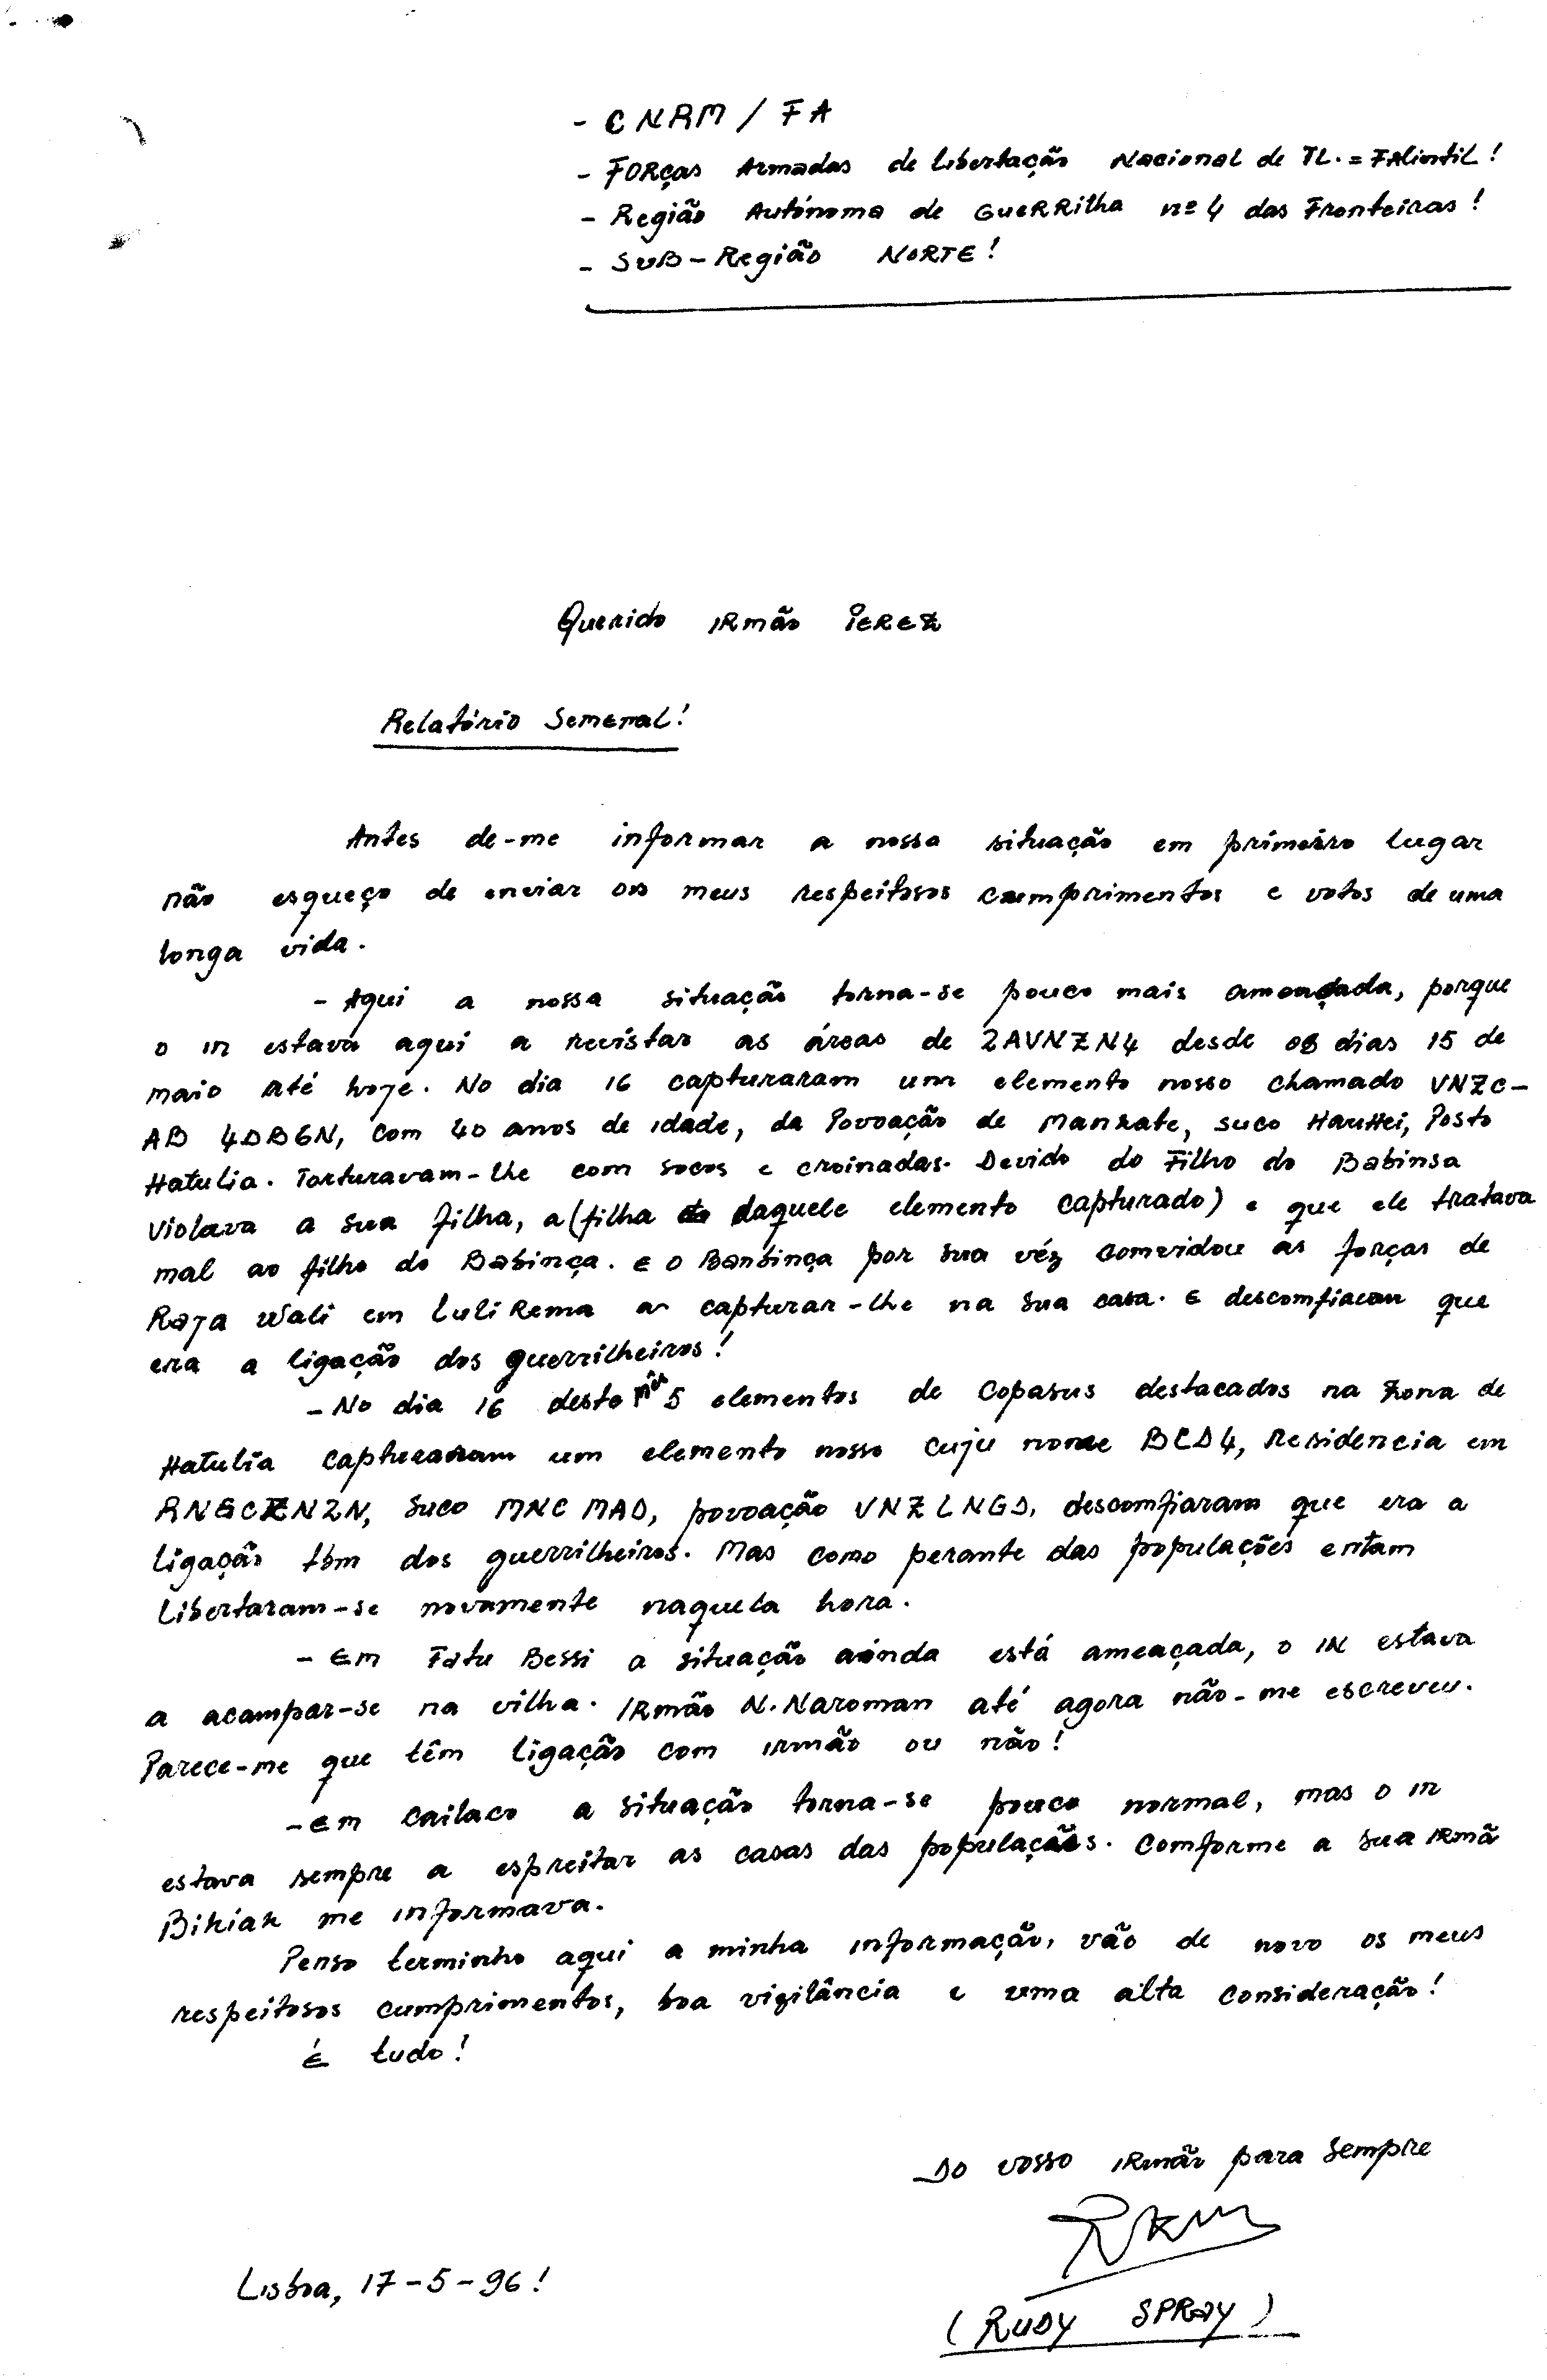 - CNRM / FA
- FORças Armadas de Libertação Nacional de TL. = FAlintiL!
- Região Autónoma de GueRRilha nº 4 das Fronteiras!
- SUB-Região NORTE!
Querido IRmão PEREZ
Relatório Semenal!
Antes de-me informar a nossa situação em primeiro lugar
não esqueço de enviar os meus respeitosos cumprimentos e votos de uma
longa vida.
- Aqui a nossa situação torna-se pouco mais ameaçada, porque
o in estava aqui a revistar as áreas de 2AVNZN4 desde os dias 15 de
maio até hoje. No dia 16 capturaram um elemento nosso chamado VNZC-
AB 4DB6N, com 40 anos de idade, da Povoação de Manzate, suco HauHei, Posto
Hatulia. Torturavam-lhe com socos e croinadas. Devido do Filho do Babinsa
Violava a sua filha, a (filha daquele elemento capturado) e que ele tratava
mal ao filho do Babinça. E o Banbinça por sua véz comvidou as forças de
Raja Wali em LuliRema a capturar-lhe na sua casa. E descomfiavam que
era a ligação dos guerrilheiros!
- No dia 16 deste mês 5 elementos de Copasus destacados na Zona de
Hatulia capturaram um elemento nosso cuju nome BCD4, Residencia em
RNGCZN2N, Suco MNC MAD, povoação VNZLNGD, descomfiaram que era a
ligação tbm dos guerrilheiros. Mas como perante das populações entam
Libertaram-se novamente naquela hora.
- Em Fatu Bessi a situação ainda está ameaçada, o IN estava
a acampar-se na vilha. IRmão N. Naroman até agora não-me escreveu.
Parece-me que têm ligação com irmão ou não!
- Em Cailaco a situação torna-se pouco normal, mas o in
estava sempre a espreitar as casas das populações. Comforme a sua IRmã
Bikiak me informava.
Penso terminho aqui a minha informação, vão de novo os meus
respeitosos cumprimentos, boa vigilância e uma alta consideração!
É tudo!
Do vosso IRmão para Sempre
Lisboa, 17-5-96!
(RUDY SPRAY)